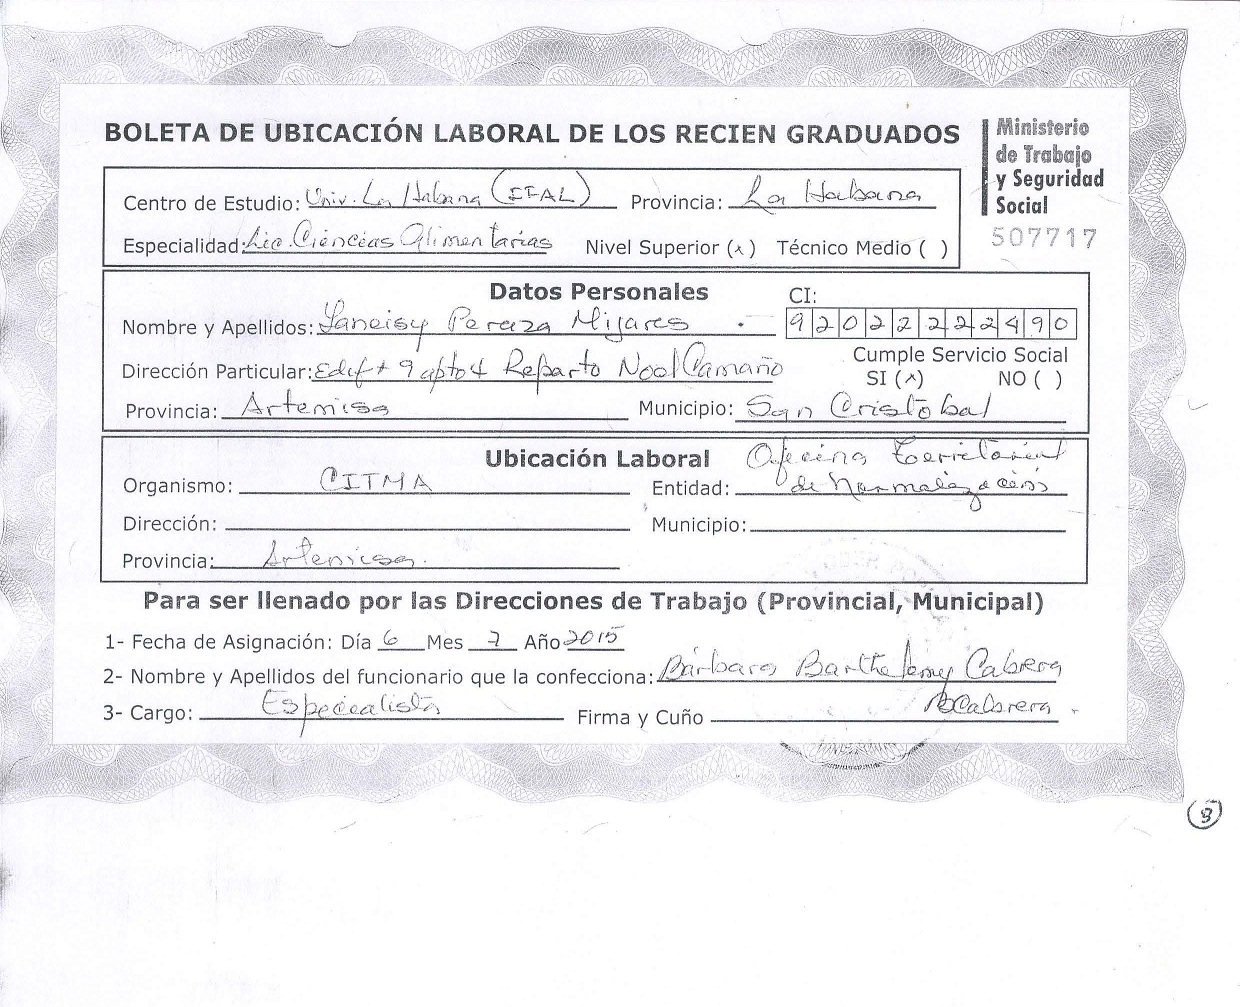 BOLETA DE UBICACIÓN LABORAL DE LOS RECIEN GRADUADOS
Ministerio
de Trabajo
y Seguridad
Social
507717
Centro de Estudio: Univ. La Habana (IFAL) Provincia: La Habana
Especialidad: Lic. Ciencias Alimentarias Nivel Superior (x) Técnico Medio ( )
Datos Personales
CI:
Nombre y Apellidos: Yaneisy Peraza Mijares 92022222490
Cumple Servicio Social
Dirección Particular: Edif # 9 apto 4 Reparto Noel Camaño
SI (x) NO ( )
Provincia: Artemisa Municipio: San Cristobal
Ubicación Laboral
Organismo: CITMA Entidad: Oficina Territorial
de Normalización
Dirección: Municipio:
Provincia: Artemisa.
Para ser llenado por las Direcciones de Trabajo (Provincial, Municipal)
1- Fecha de Asignación: Día 6 Mes 7 Año 2015
2- Nombre y Apellidos del funcionario que la confecciona: Bárbara Barthelemy Cabrera
3- Cargo: Especialista Firma y Cuño BCabrera
8